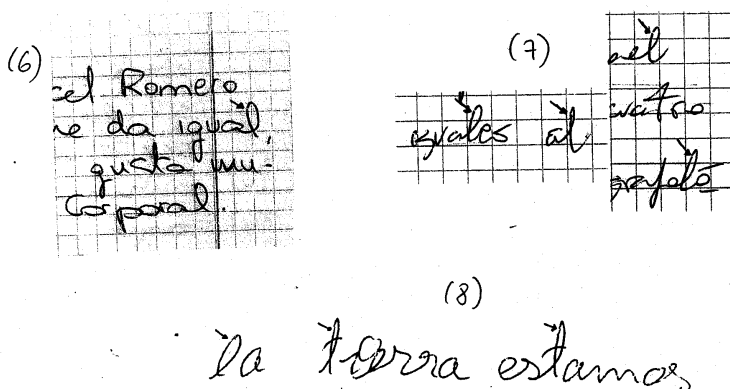 (6)
cel Romero
re da igual,
gusta mu-
Corporal.
(7)
iguales al
uel
cuatro
grafoló
(8)
la tierra estamos